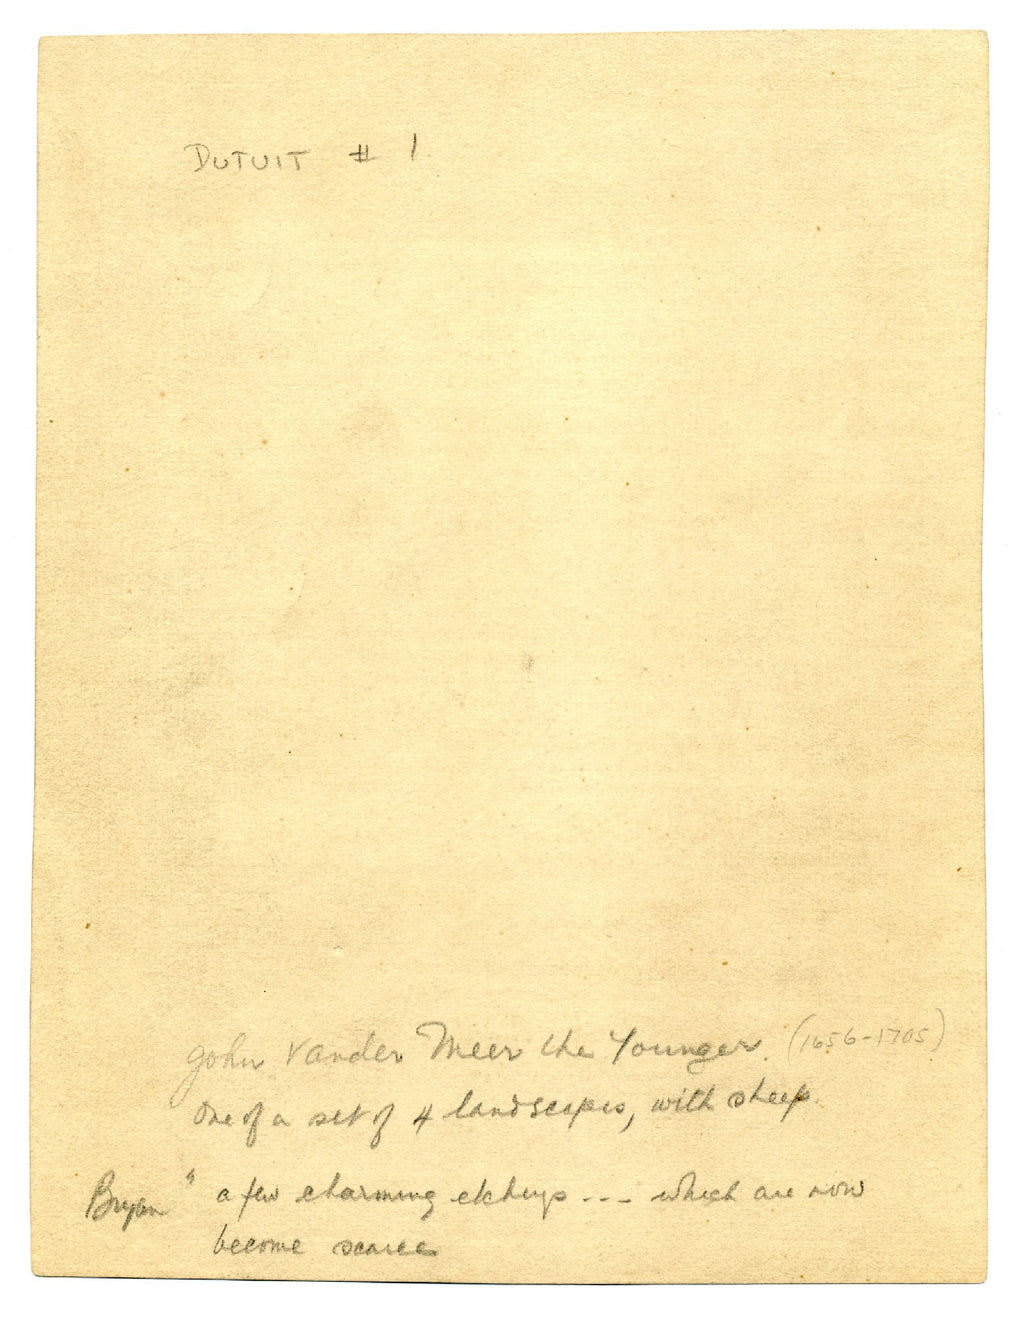 DUTUIT # 1
John Vander Meer the Younger. (1656-1705)
One of a set of 4 landscapes, with sheep.
Bryan " a few charming etchings --- which are now
become scarce